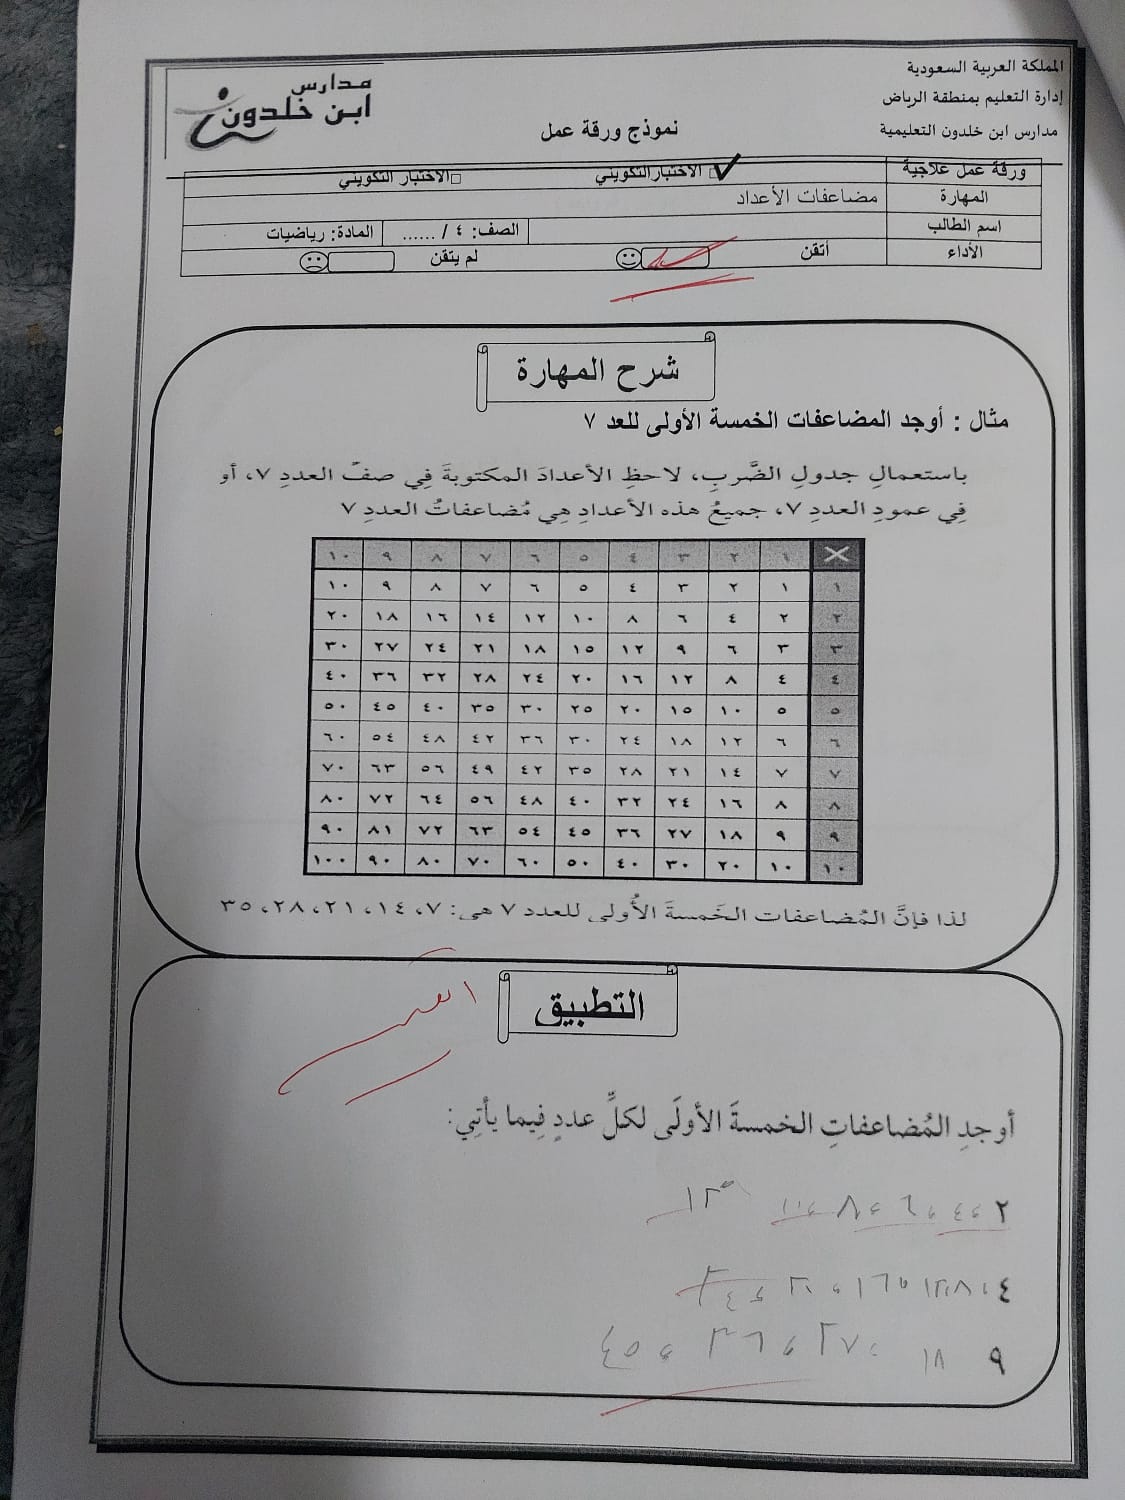 المملكة العربية السعودية
إدارة التعليم بمنطقة الرياض
مدارس ابن خلدون التعليمية
نموذج ورقة عمل
مدارس
ابن خلدون
ورقة عمل علاجية الاختبار التكويني الاختبار التكويني
المهارة مضاعفات الأعداد
اسم الطالب الصف: ٤ / ...... المادة: رياضيات
الأداء أتقن لم يتقن
شرح المهارة
مثال : أوجد المضاعفات الخمسة الأولى للعد ٧
باستعمالِ جدولِ الضَّربِ، لاحظِ الأعدادَ المكتوبةَ فِي صفِّ العددِ ٧، أو
فِي عمودِ العددِ ٧، جميعُ هذه الأعدادِ هِي مُضاعفاتُ العددِ ٧
× ١ ٢ ٣ ٤ ٥ ٦ ٧ ٨ ٩ ١٠
١ ١ ٢ ٣ ٤ ٥ ٦ ٧ ٨ ٩ ١٠
٢ ٢ ٤ ٦ ٨ ١٠ ١٢ ١٤ ١٦ ١٨ ٢٠
٣ ٣ ٦ ٩ ١٢ ١٥ ١٨ ٢١ ٢٤ ٢٧ ٣٠
٤ ٤ ٨ ١٢ ١٦ ٢٠ ٢٤ ٢٨ ٣٢ ٣٦ ٤٠
٥ ٥ ١٠ ١٥ ٢٠ ٢٥ ٣٠ ٣٥ ٤٠ ٤٥ ٥٠
٦ ٦ ١٢ ١٨ ٢٤ ٣٠ ٣٦ ٤٢ ٤٨ ٥٤ ٦٠
٧ ٧ ١٤ ٢١ ٢٨ ٣٥ ٤٢ ٤٩ ٥٦ ٦٣ ٧٠
٨ ٨ ١٦ ٢٤ ٣٢ ٤٠ ٤٨ ٥٦ ٦٤ ٧٢ ٨٠
٩ ٩ ١٨ ٢٧ ٣٦ ٤٥ ٥٤ ٦٣ ٧٢ ٨١ ٩٠
١٠ ١٠ ٢٠ ٣٠ ٤٠ ٥٠ ٦٠ ٧٠ ٨٠ ٩٠ ١٠٠
لذا فإنَّ المُضاعفات الخَمسةَ الأُولى للعدد ٧ هي: ٧، ١٤، ٢١، ٢٨، ٣٥
التطبيق
أوجدِ المُضاعفاتِ الخمسةَ الأولَى لكلِّ عددٍ فِيما يأتِي:
٢ ، ٤ ، ٦ ، ٨ ، ١٠ ١٢
٤ ، ٨ ، ١٢ ، ١٦ ، ٢٠ ، ٢٤
٩ ١٨ ، ٢٧ ، ٣٦ ، ٤٥